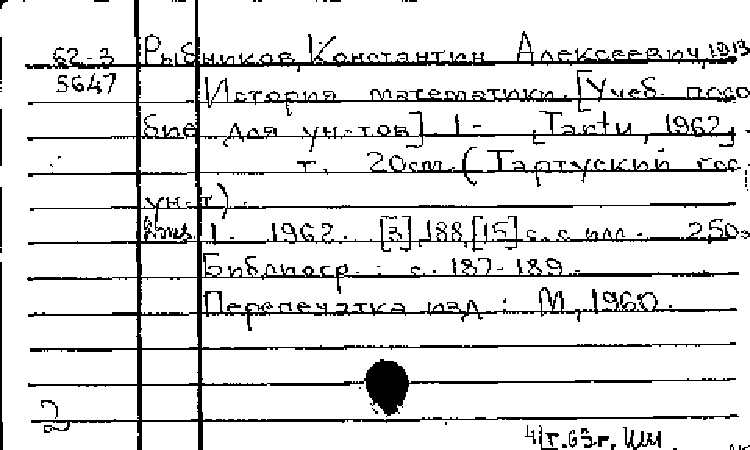 62-3 Рыбников, Константин Алексеевич, 1913
5647 История математики. [Учеб. посо
бие для ун-тов] 1- [Tartu, 1962].
т. 20см. (Тартуский гос.
ун-т).
1. 1962. [3], 188, [15] с. с илл. 250э
Библиогр.: с. 187-189.
Перепечатка изд.: М., 1960.
2